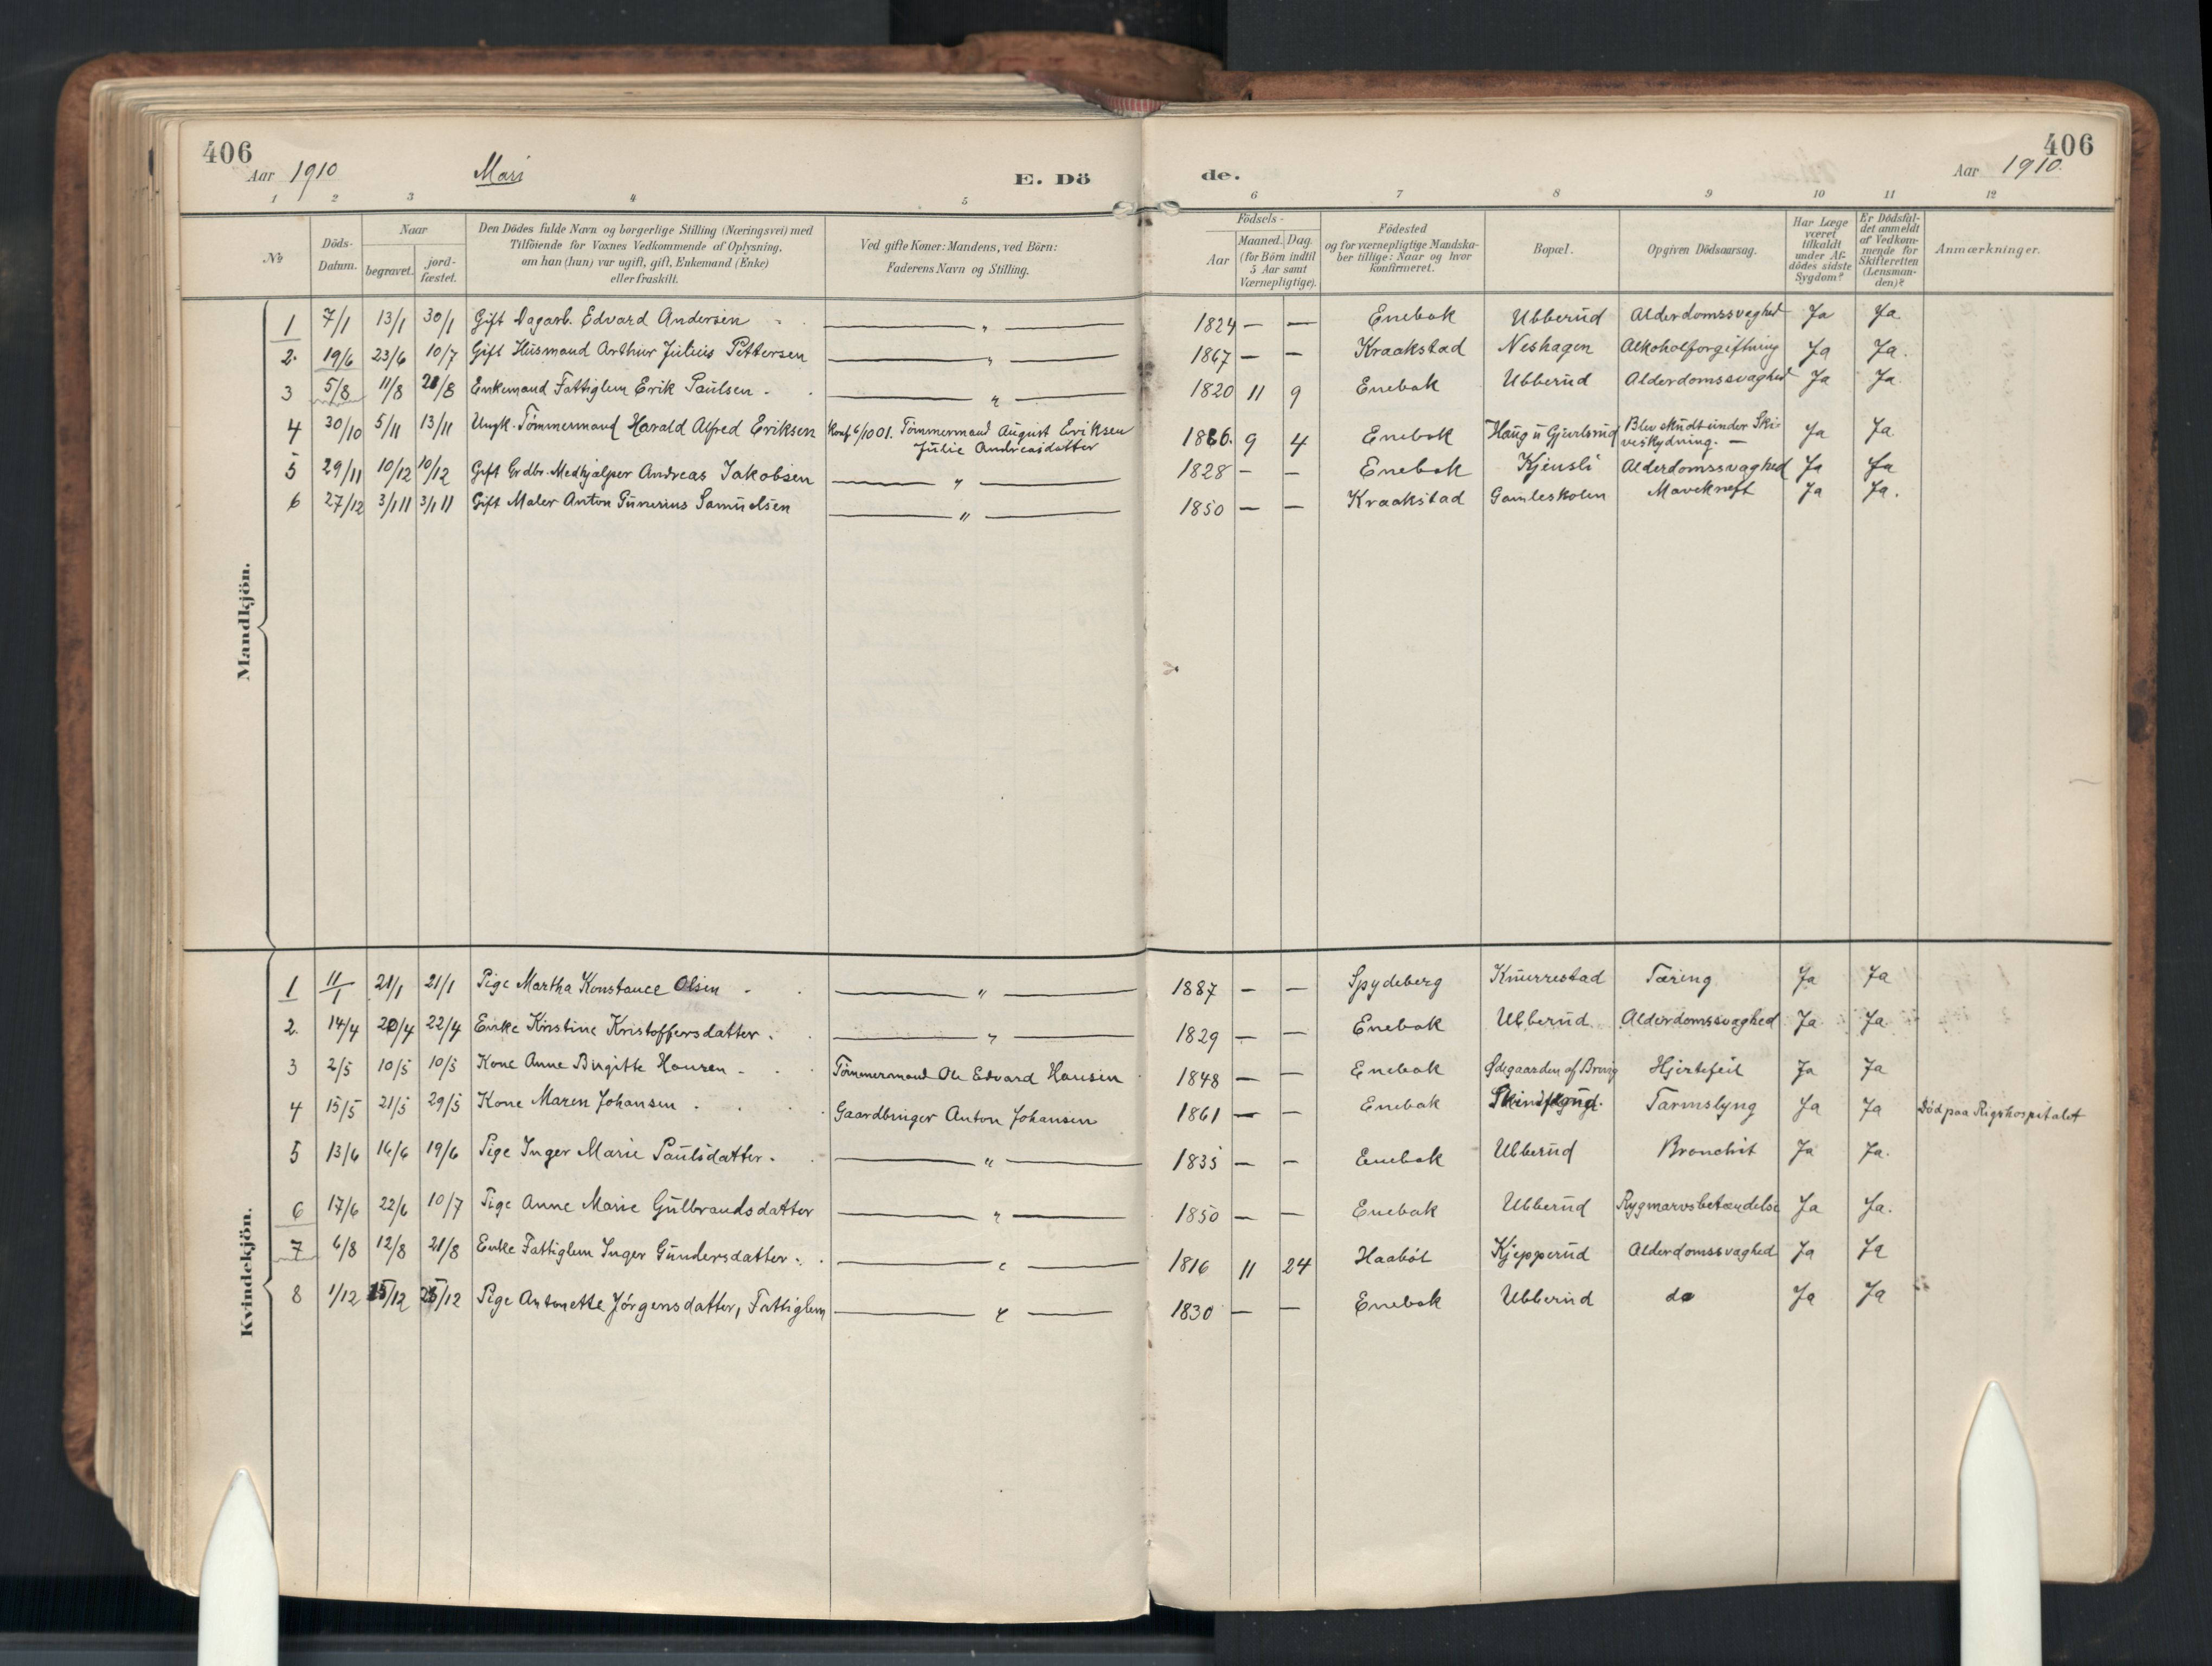 406
Aar 1910
Mari
E. Dö de.
Aar 1910.
406
1 2 3 4 5 6 7 8 9 10 11 12
№
Döds-Datum.
Naar
begravet.
jord-fæstet.
Den Dödes fulde Navn og borgerlige Stilling (Næringsvei) med
Tilföiende for Voxnes Vedkommende af Oplysning,
om han (hun) var ugift, gift, Enkemand (Enke)
eller fraskilt.
Ved gifte Koner: Mandens, ved Börn:
Faderens Navn og Stilling.
Födsels-
Aar
Maaned. Dag.
(for Börn indtil
5 Aar samt
Værnepligtige).
Födested
og for værnepligtige Mandska-
ber tillige: Naar og hvor
konfirmeret.
Bopæl.
Opgiven Dödsaarsag.
Har Læge
været
tilkaldt
under Af-
dödes sidste
Sygdom?
Er Dödsfal-
det anmeldt
af Vedkom-
mende for
Skifteretten
(Lensman-
den)?
Anmærkninger.
Mandkjön.
1 7/1 13/1 30/1 Gift Dagarb. Edvard Andersen — " — 1824 — — Enebak Ubberud Alderdomssvaghed Ja Ja
2. 19/6 23/6 10/7 Gift Husmand Arthur Julius Pettersen — " — 1867 — — Kraakstad Neshagen Alkoholforgiftning Ja Ja.
3 5/8 11/8 21/8 Enkemand Fattiglem Erik Paulsen — " — 1820 11 9 Enebak Ubberud Alderdomssvaghed Ja Ja
4 30/10 5/11 13/11 Ungk. Tömmermand Harald Alfred Eriksen Konf. 6/10 01. Tömmermand August Eriksen 1886. 9 4 Enebak Haug u Gjevlsrud Blev skudt under Ski- Ja Ja
Julie Andreasdatter veskydning. —
5 29/11 10/12 10/12 Gift Grdbr. Medhjælper Andreas Jakobsen — " — 1828 — — Enebak Kjensli Alderdomssvaghed Ja Ja
6 27/12 3/1 11 3/1 11 Gift Maler Anton Gunerius Samuelsen — " — 1850 — — Kraakstad Gamleskolen Mavekreft Ja Ja.
Kvindekjön.
1 11/1 21/1 21/1 Pige Martha Konstance Olsen — " — 1887 — — Spydeberg Knurrestad Tæring Ja Ja
2. 14/4 20/4 22/4 Enke Kristine Kristoffersdatter. — " — 1829 — — Enebak Ubberud Alderdomssvaghed Ja Ja
3 2/5 10/5 10/5 Kone Anne Birgitte Hansen Tömmermand Ole Edvard Hansen 1848 — — Enebak Ødegaarden af Hjertefeil Ja Ja
4 15/5 21/5 29/5 Kone Maren Johansen Gaardbruger Anton Johansen 1861 — — Enebak Tarmslyng Ja Ja Död paa Rigshospitalet
5 13/6 16/6 19/6 Pige Inger Marie Paulsdatter. — " — 1835 — — Enebak Ubberud Bronchit Ja Ja.
6 17/6 22/6 10/7 Pige Anne Marie Gulbrandsdatter — " — 1850 — — Enebak Ubberud Rygmarvsbetændelse Ja Ja.
7 6/8 12/8 21/8 Enke Fattiglem Inger Gundersdatter. — " — 1816 11 24 Haaböl Kjepperud Alderdomssvaghed Ja Ja
8 1/12 15/12 /12 Pige Antonette Jörgensdatter, Fattiglem — " — 1830 — — Enebak Ubberud do Ja Ja